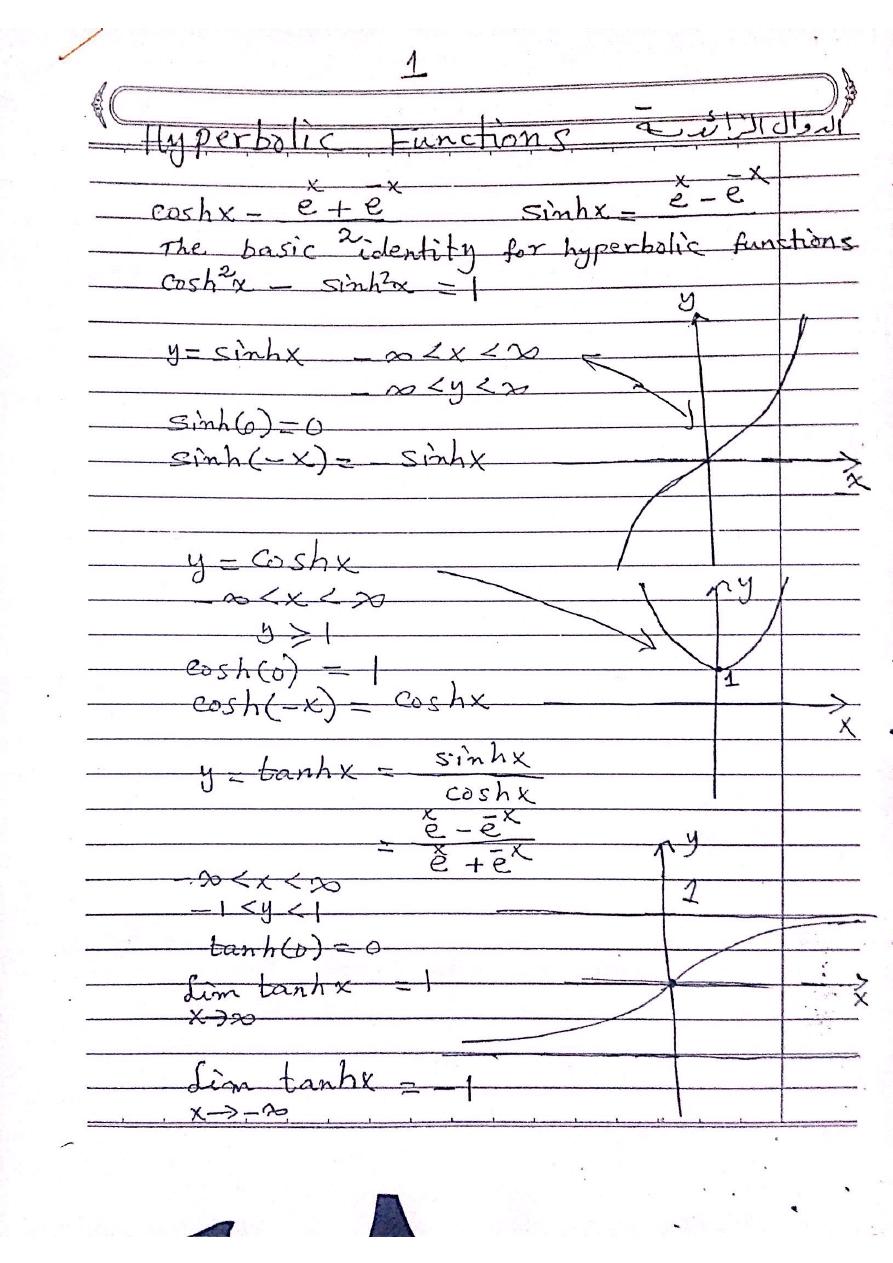 1
Hyperbolic Functions الدوال الزائدية
coshx = (e^x + e^-x)/2 sinhx = e^x - e^-x
The basic identity for hyperbolic functions
cosh²x - sinh²x = 1
y
y = sinhx -∞ < x < ∞
-∞ < y < ∞
sinh(0) = 0
sinh(-x) = - sinhx
x
y = coshx
y
-∞ < x < ∞
y ≥ 1
cosh(0) = 1
1
cosh(-x) = coshx
x
y = tanhx = sinhx / coshx
= (e^x - e^-x)/(e^x + e^-x)
y
-∞ < x < ∞
1
-1 < y < 1
tanh(0) = 0
Lim tanhx = 1
x→∞
x
Lim tanhx = -1
x→-∞